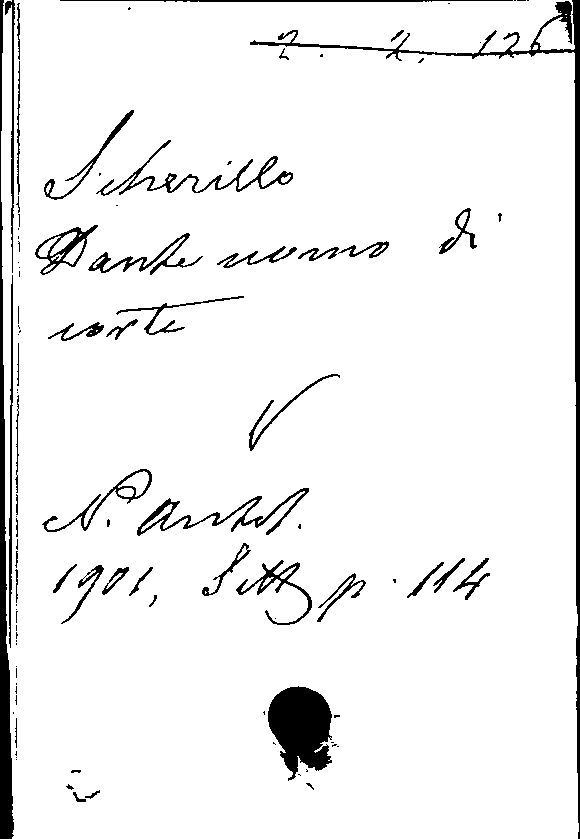 2. 2. 126
Scherillo
Dante uomo di
corte
V
N. Antol.
1901, Sett p. 114